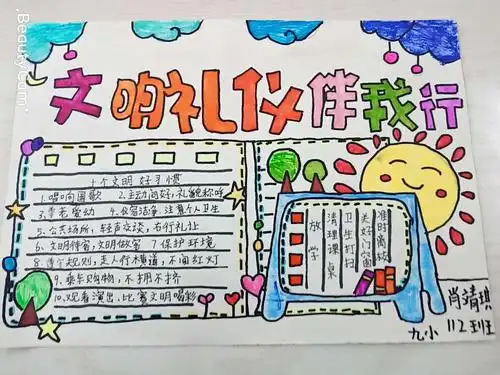 BeautyCam
文明礼仪伴我行
十个文明好习惯
1.唱响国歌 2.主动问好,礼貌称呼
3.孝老爱幼 4.仪容洁净,注意个人卫生
5.公共场所,轻声交谈,右行礼让
6.文明待客,文明做客 7.保护环境
8.遵守规则,走人行横道,不闯红灯
9.乘车购物,不拥不挤
10.观看演出,比赛文明喝彩
准时离校
关好门窗
卫生打扫
清理课桌
放学
肖靖琪
九小 112班